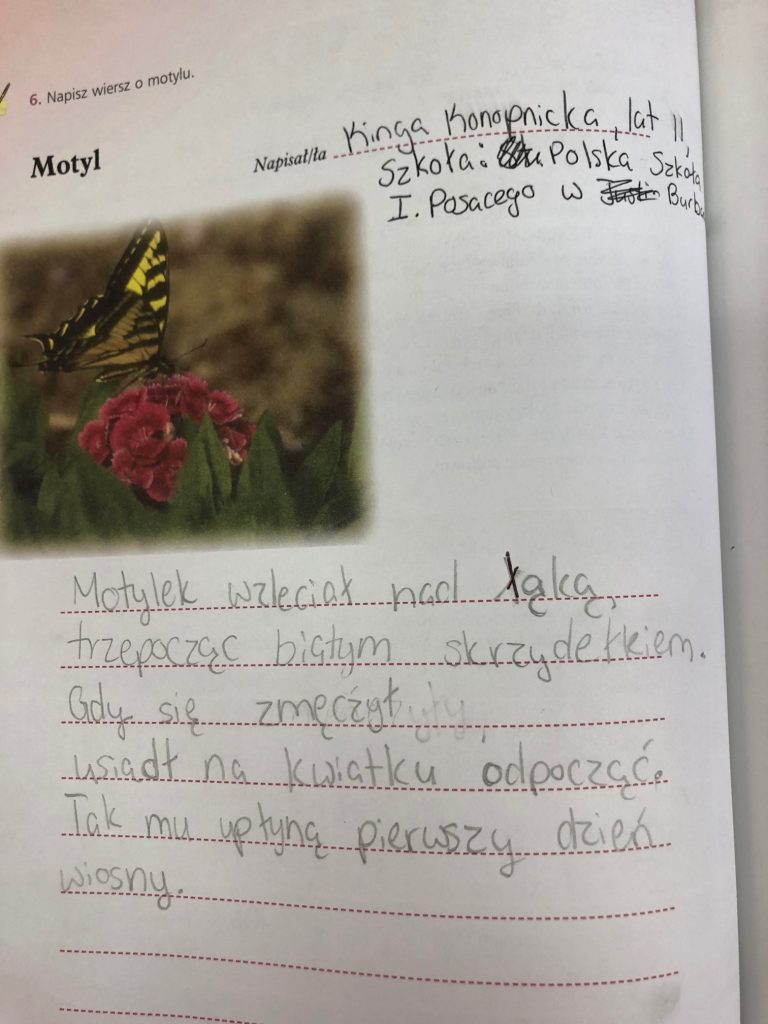 6. Napisz wiersz o motylu.
Motyl
Napisał/ła Kinga Konopnicka, lat 11,
Szkoła: Polska Szkoła
I. Posacego w
Motylek wzleciał nad łąką,
trzepocząc biątym skrzydełkiem.
Gdy się zmęćżył,
usiadł na kwiatku odpocząć.
Tak mu upłyną pierwszy dzień
wiosny.